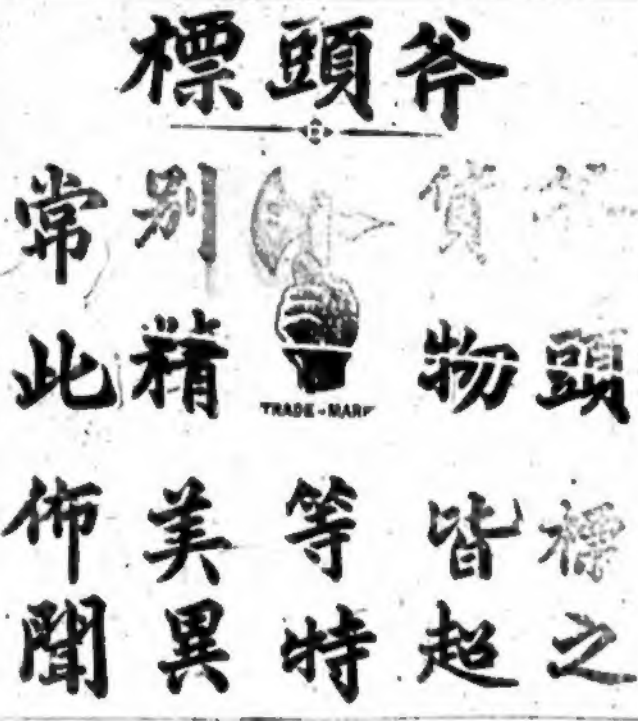 斧頭標
斧頭標之
貨物皆超
TRADE-MARK
等特
別精美異
常此佈聞